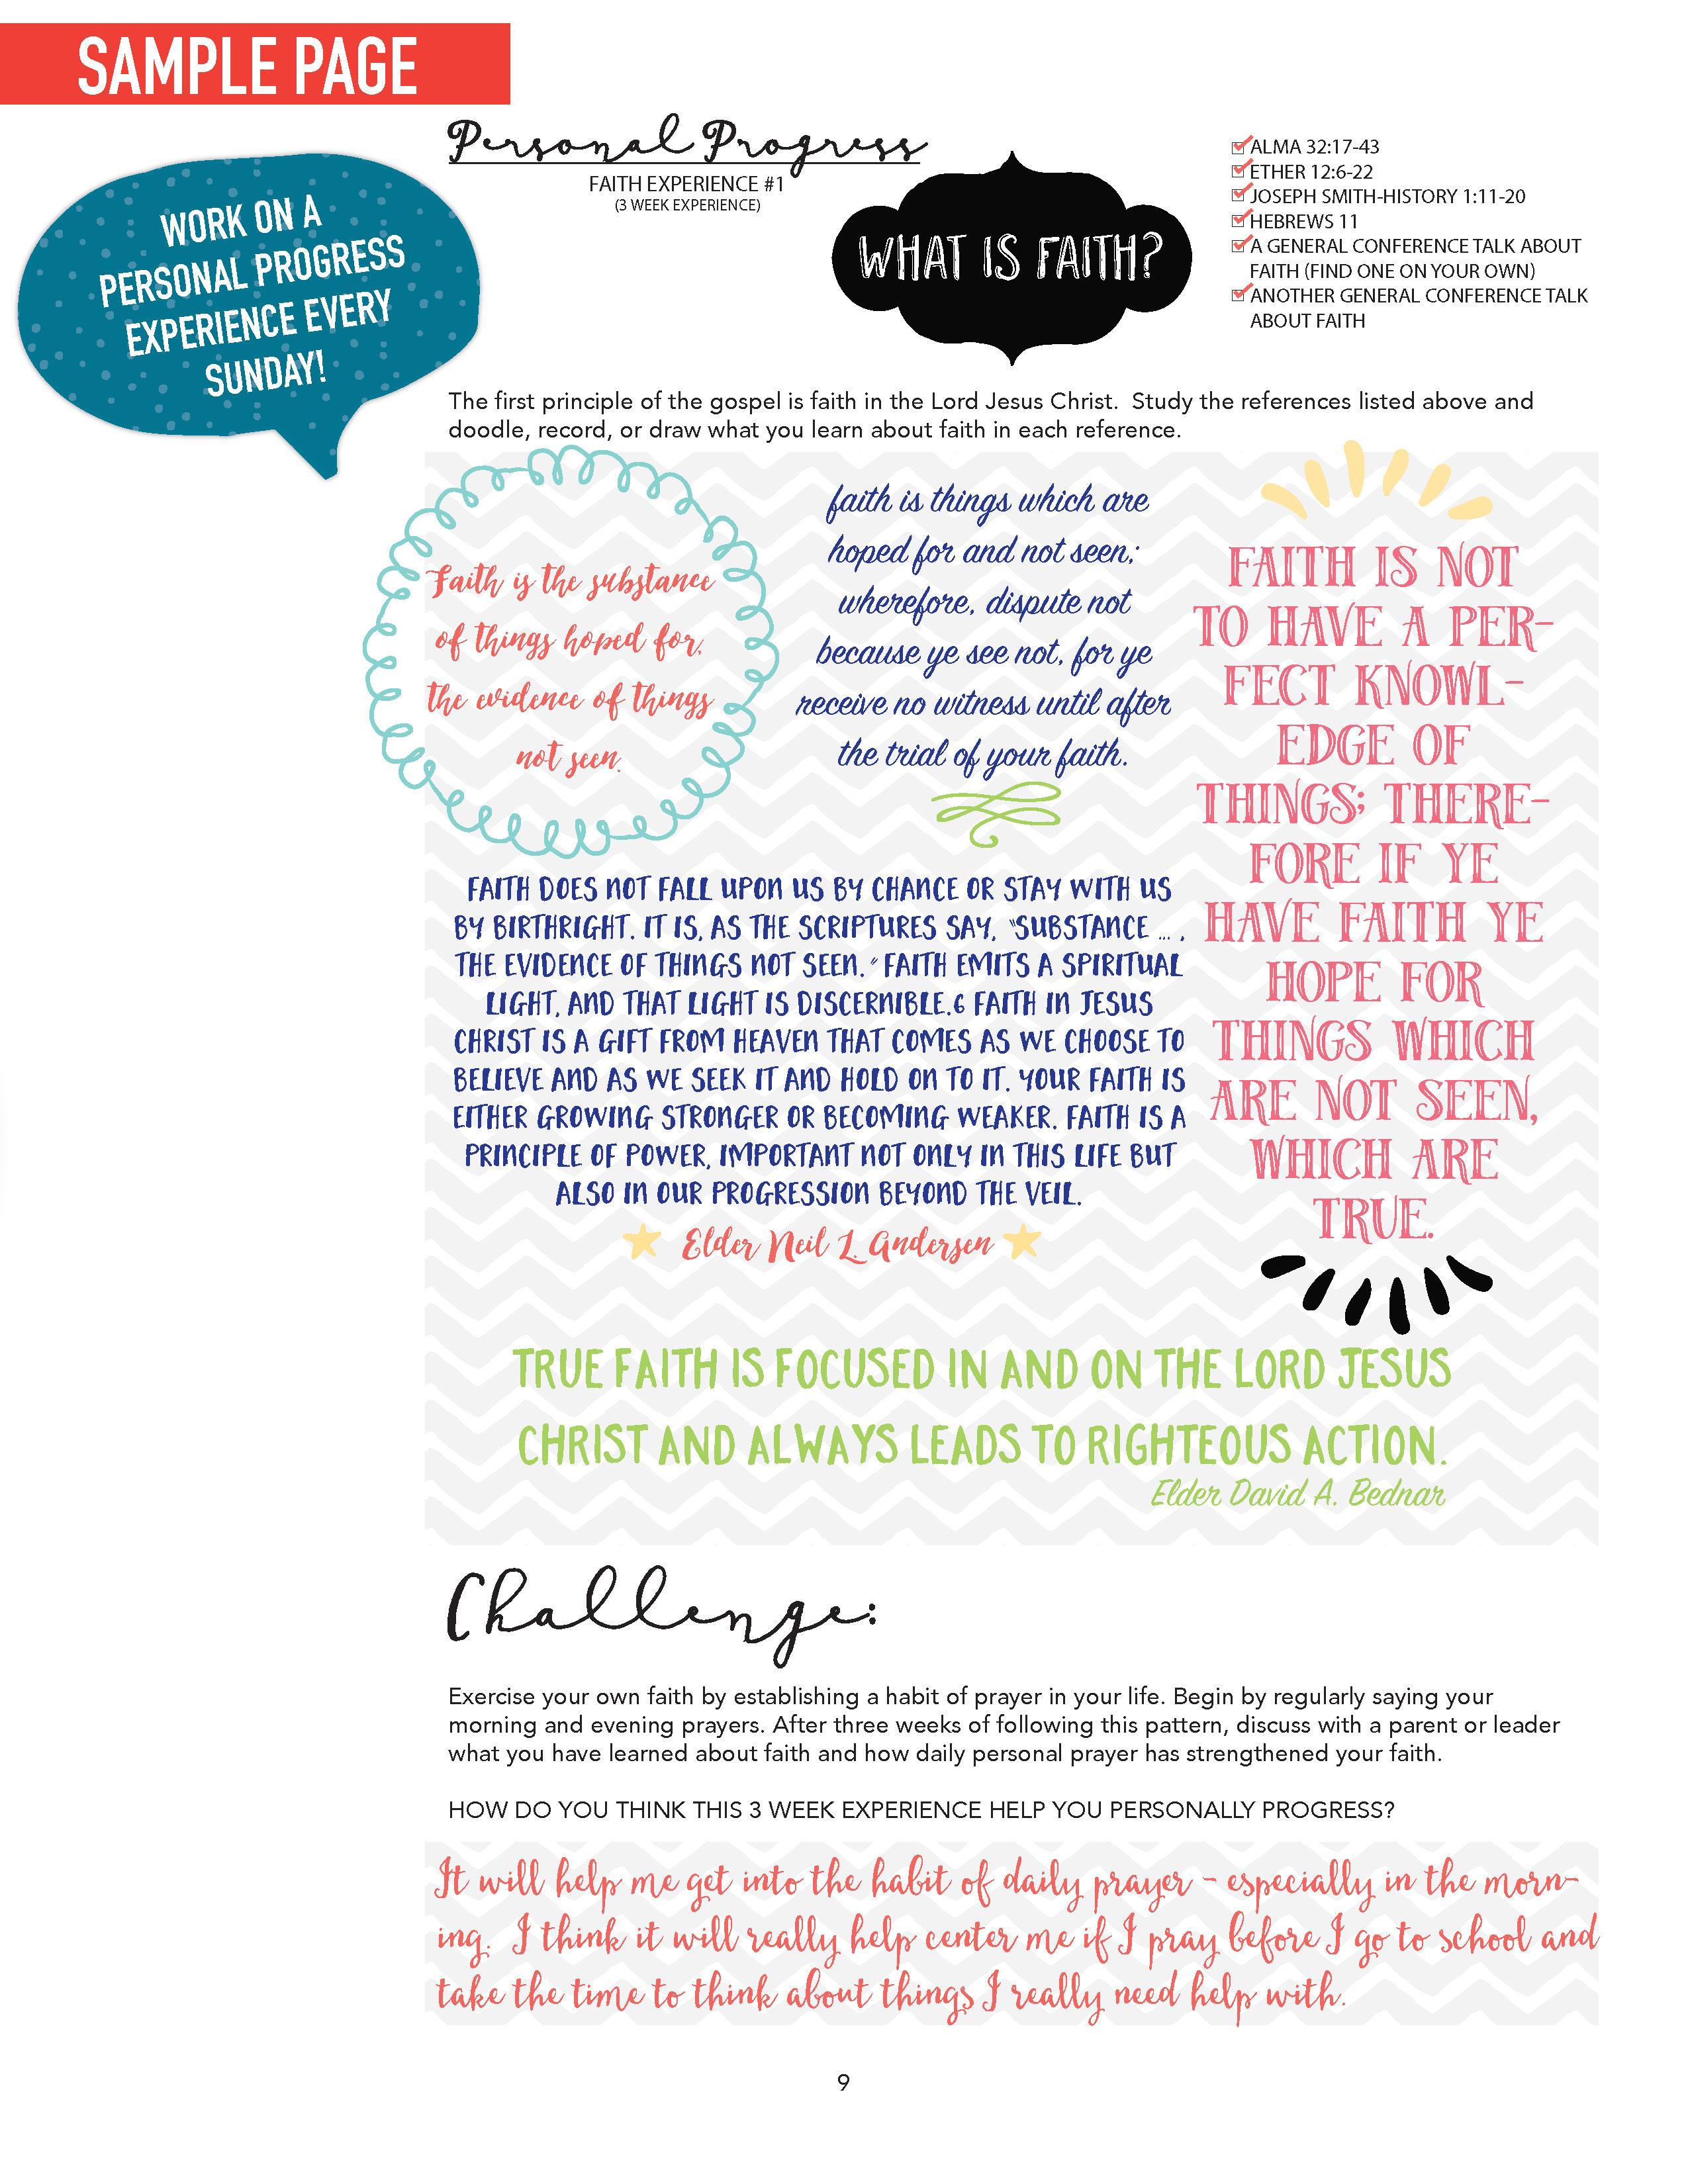 SAMPLE PAGE
WORK ON A
PERSONAL PROGRESS
EXPERIENCE EVERY
SUNDAY!
Personal Progress
FAITH EXPERIENCE #1
(3 WEEK EXPERIENCE)
WHAT IS FAITH?
ALMA 32:17-43
ETHER 12:6-22
JOSEPH SMITH-HISTORY 1:11-20
HEBREWS 11
A GENERAL CONFERENCE TALK ABOUT
FAITH (FIND ONE ON YOUR OWN)
ANOTHER GENERAL CONFERENCE TALK
ABOUT FAITH
The first principle of the gospel is faith in the Lord Jesus Christ.  Study the references listed above and
doodle, record, or draw what you learn about faith in each reference.
Faith is the substance
of things hoped for,
the evidence of things
not seen.
faith is things which are
hoped for and not seen;
wherefore, dispute not
because ye see not, for ye
receive no witness until after
the trial of your faith.
FAITH IS NOT
TO HAVE A PER-
FECT KNOWL-
EDGE OF
THINGS; THERE-
FORE IF YE
HAVE FAITH YE
HOPE FOR
THINGS WHICH
ARE NOT SEEN,
WHICH ARE
TRUE.
FAITH DOES NOT FALL UPON US BY CHANCE OR STAY WITH US
BY BIRTHRIGHT. IT IS, AS THE SCRIPTURES SAY, “SUBSTANCE … ,
THE EVIDENCE OF THINGS NOT SEEN.” FAITH EMITS A SPIRITUAL
LIGHT, AND THAT LIGHT IS DISCERNIBLE.6 FAITH IN JESUS
CHRIST IS A GIFT FROM HEAVEN THAT COMES AS WE CHOOSE TO
BELIEVE AND AS WE SEEK IT AND HOLD ON TO IT. YOUR FAITH IS
EITHER GROWING STRONGER OR BECOMING WEAKER. FAITH IS A
PRINCIPLE OF POWER, IMPORTANT NOT ONLY IN THIS LIFE BUT
ALSO IN OUR PROGRESSION BEYOND THE VEIL.
Elder Neil L. Andersen
TRUE FAITH IS FOCUSED IN AND ON THE LORD JESUS
CHRIST AND ALWAYS LEADS TO RIGHTEOUS ACTION.
Elder David A. Bednar
Challenge:
Exercise your own faith by establishing a habit of prayer in your life. Begin by regularly saying your
morning and evening prayers. After three weeks of following this pattern, discuss with a parent or leader
what you have learned about faith and how daily personal prayer has strengthened your faith.
HOW DO YOU THINK THIS 3 WEEK EXPERIENCE HELP YOU PERSONALLY PROGRESS?
It will help me get into the habit of daily prayer - especially in the morn-
ing.  I think it will really help center me if I pray before I go to school and
take the time to think about things I really need help with.
9